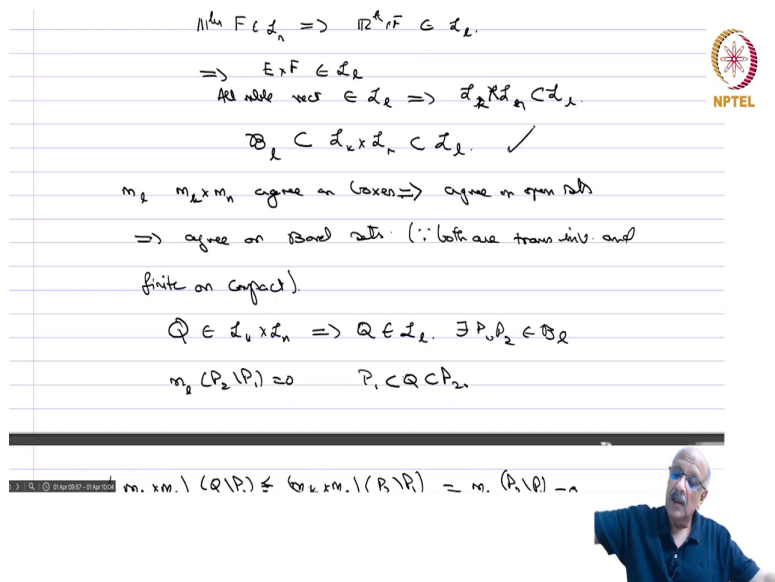 F ∈ ℒₙ ⇒ ℝᵏ×F ∈ ℒₗ.
⇒ E×F ∈ ℒₗ
All mble rect ∈ ℒₗ ⇒ ℒₖ×ℒₙ ⊂ ℒₗ.
ℬₗ ⊂ ℒₖ×ℒₙ ⊂ ℒₗ. ✓
mₗ mₖ×mₙ agree on boxes ⇒ agree on open sets
⇒ agree on Borel sets. (∵ both are trans inv. and
finite on compact).
Q ∈ ℒₖ×ℒₙ ⇒ Q ∈ ℒₗ. ∃ P₁,P₂ ∈ ℬₗ
mₗ(P₂\P₁)=0 P₁⊂Q⊂P₂.
(Q\P₁) ≤ (mₖ×mₙ)(P₂\P₁) = mₗ(P₂\P₁) = 0
01 Apr 09:57 - 01 Apr 10:04
NPTEL